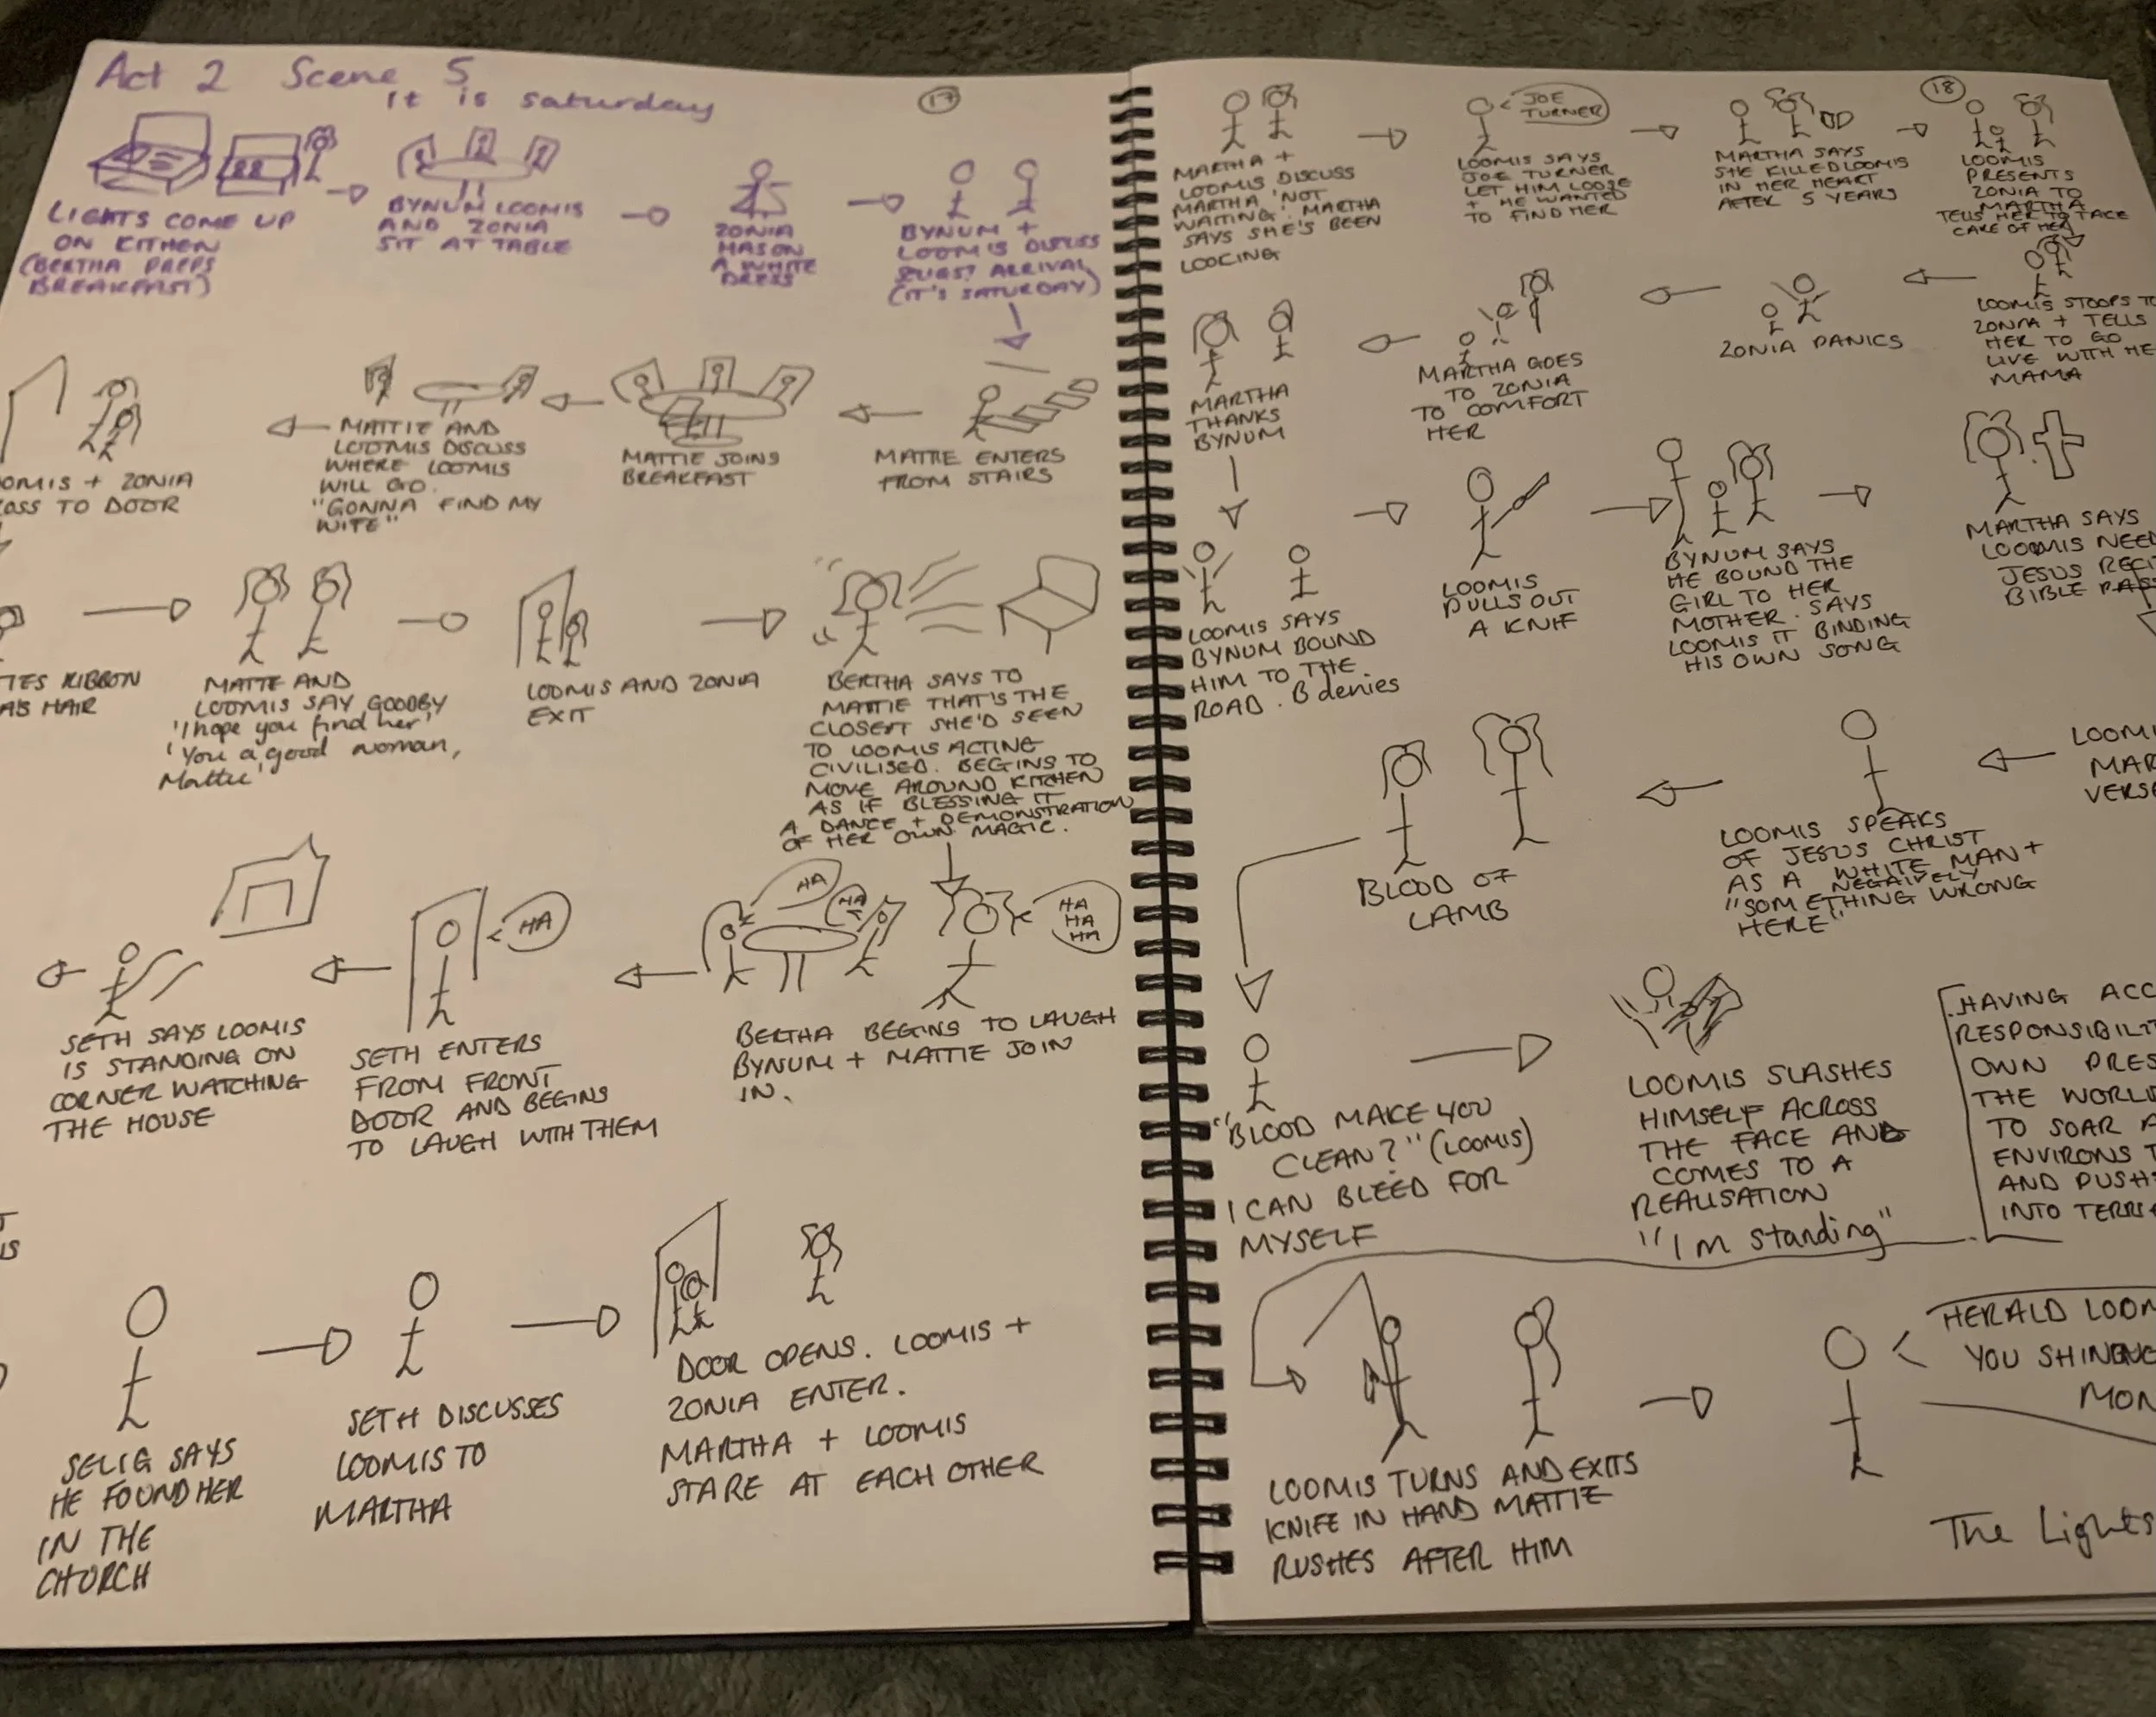 Act 2 Scene 5
It is saturday
17
LIGHTS COME UP
ON KITHEN
(BERTHA PREPS
BREAKFAST)
BYNUM LOOMIS
AND ZONIA
SIT AT TABLE
ZONIA
HAS ON
A WHITE
DRESS
BYNUM +
LOOMIS DISCUSS
ARRIVAL
(IT'S SATURDAY)
MATTIE ENTERS
FROM STAIRS
MATTIE JOINS
BREAKFAST
MATTIE AND
LOOMIS DISCUSS
WHERE LOOMIS
WILL GO.
"GONNA FIND MY
WIFE"
OOMIS + ZONIA
OSS TO DOOR
TIES RIBBON
A'S HAIR
MATTE AND
LOOMIS SAY GOODBY
'I hope you find her'
'You a good woman,
Mattie'
LOOMIS AND ZONIA
EXIT
BERTHA SAYS TO
MATTIE THAT'S THE
CLOSEST SHE'D SEEN
TO LOOMIS ACTING
CIVILISED. BEGINS TO
MOVE AROUND KITCHEN
AS IF BLESSING IT
A DANCE + DEMONSTRATION
OF HER OWN MAGIC.
HA
HA
HA
HA
HA
BERTHA BEGINS TO LAUGH
BYNUM + MATTIE JOIN
IN.
HA
SETH ENTERS
FROM FRONT
DOOR AND BEGINS
TO LAUGH WITH THEM
SETH SAYS LOOMIS
IS STANDING ON
CORNER WATCHING
THE HOUSE
SELIG SAYS
HE FOUND HER
IN THE
CHURCH
SETH DISCUSSES
LOOMIS TO
MARTHA
DOOR OPENS. LOOMIS +
ZONIA ENTER.
MARTHA + LOOMIS
STARE AT EACH OTHER
18
MARTHA +
LOOMIS DISCUSS
MARTHA 'NOT
WAITING'. MARTHA
SAYS SHE'S BEEN
LOOCING
JOE
TURNER
LOOMIS SAYS
JOE TURNER
LET HIM LOOSE
+ HE WANTED
TO FIND HER
MARTHA SAYS
SHE KILLED LOOMIS
IN HER HEART
AFTER 5 YEARS
LOOMIS
PRESENTS
ZONIA TO
MARTHA
TELLS HER TO TACE
CARE OF HER
LOOMIS STOOPS TO
ZONIA + TELLS
HER TO GO
LIVE WITH HE
MAMA
ZONIA PANICS
MARTHA GOES
TO ZONIA
TO COMFORT
HER
MARTHA
THANKS
BYNUM
LOOMIS SAYS
BYNUM BOUND
HIM TO THE
ROAD. B denies
LOOMIS
PULLS OUT
A KNIF
BYNUM SAYS
HE BOUND THE
GIRL TO HER
MOTHER. SAYS
LOOMIS IT BINDING
HIS OWN SONG
MARTHA SAYS
LOOMIS NEED
JESUS RECI
BIBLE PASS
LOOMI
MAR
VERSE
LOOMIS SPEAKS
OF JESUS CHRIST
AS A WHITE MAN +
NEGAIVELY
"SOMETHING WRONG
HERE"
BLOOD OF
LAMB
"BLOOD MAKE YOU
CLEAN?" (LOOMIS)
I CAN BLEED FOR
MYSELF
LOOMIS SLASHES
HIMSELF ACROSS
THE FACE AND
COMES TO A
REALISATION
"I'm standing"
HAVING ACC
RESPONSIBILIT
OWN PRES
THE WORLD
TO SOAR A
ENVIRONS T
AND PUSH
INTO TERRI
LOOMIS TURNS AND EXITS
KNIFE IN HAND MATTIE
RUSHES AFTER HIM
HERALD LOOM
YOU SHINING
MON
The Lights